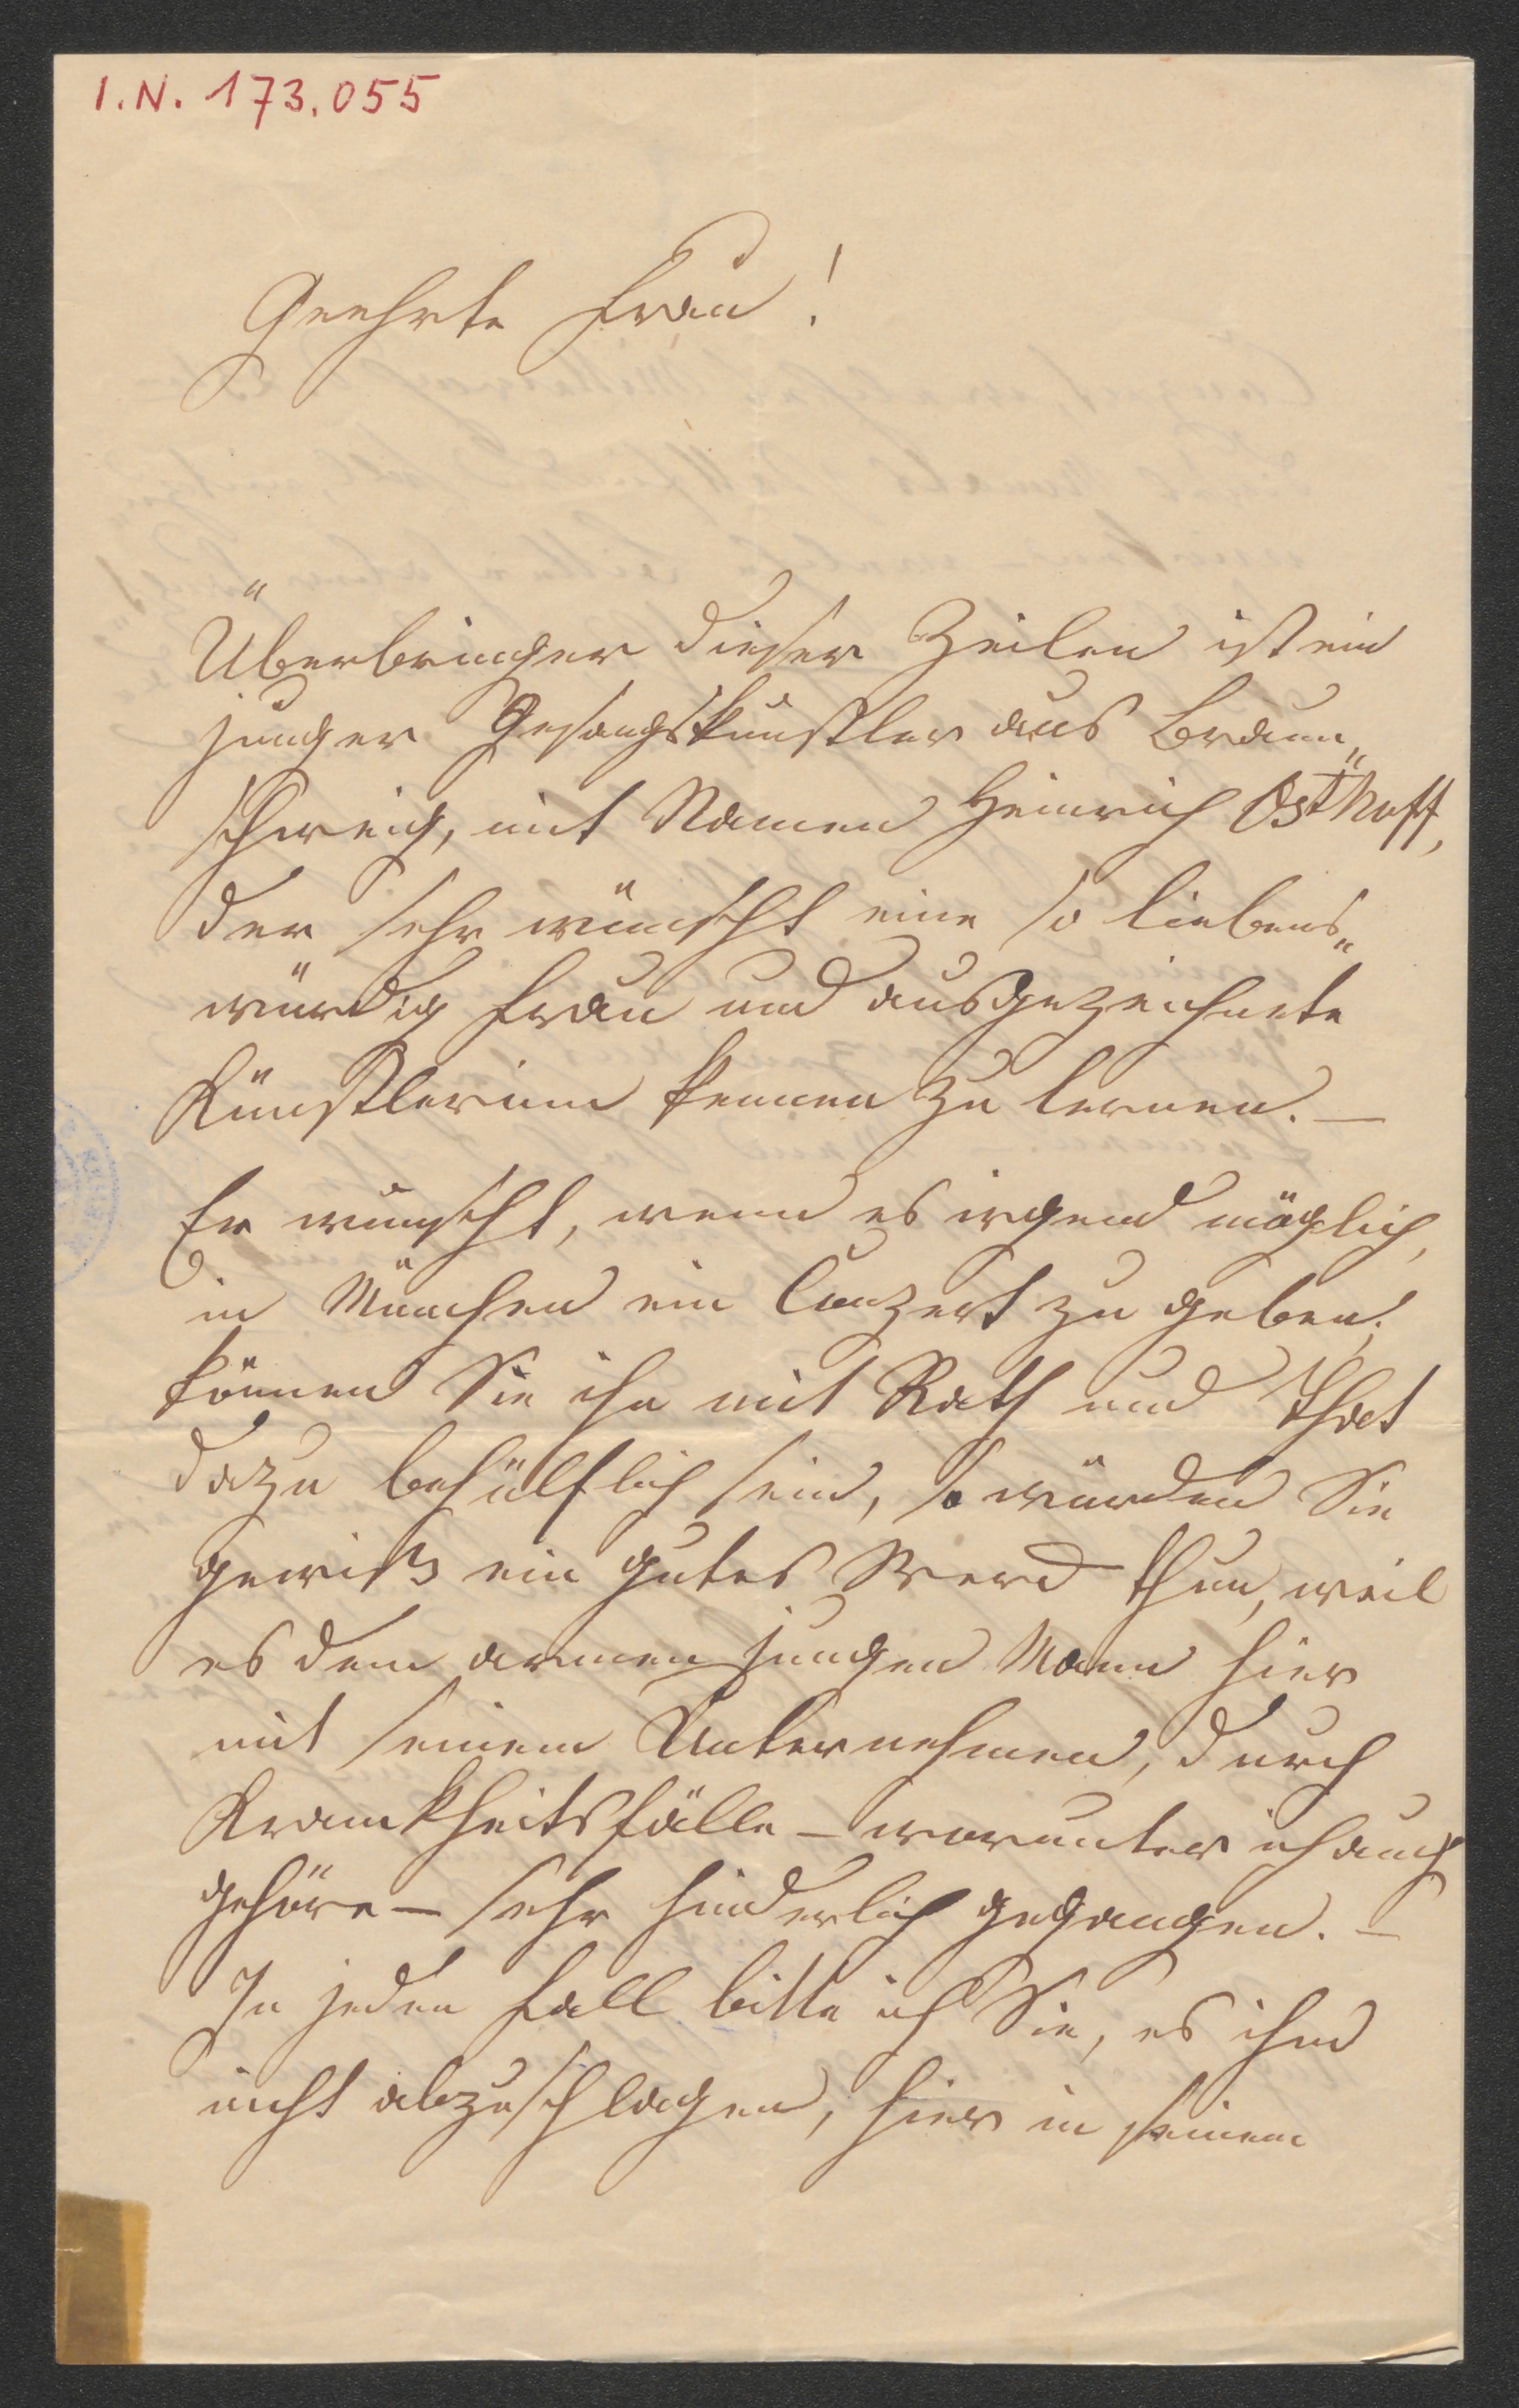 I.N. 173.055
Geehrte Frau!
Überbringer dieser Zeilen ist ein
junger Gesangskünstler aus Braun„
schweig, mit Namen Heinrich Osthoff,
der sehr wünscht eine so liebens„
würdig Frau und ausgezeichnete
Künstlerinn kennen zu lernen. —
Er wünscht, wenn es irgend möglich,
in München ein Conzert zu geben;
können Sie ihn mit Rath und That
dazu behülflich sein, so würden Sie
gewiß ein gutes Werk thun, weil
es dem armen jungen Mann hier
mit seinem Unternehmen, durch
Krankheitsfälle – worunter ich auch
gehöre – sehr hinderlich gegangen. –
In jeden Fall bitte ich Sie, es ihm
nicht abzuschlagen, hier in seinem